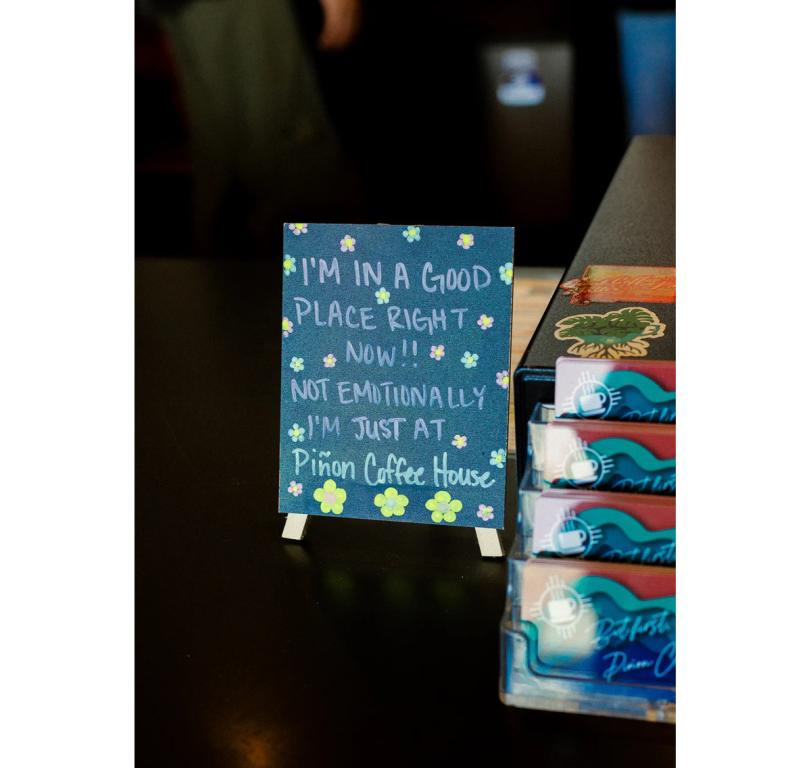 I'M IN A GOOD
PLACE RIGHT
NOW!!
NOT EMOTIONALLY
I'M JUST AT
Piñon Coffee House
But first,
Piñon C